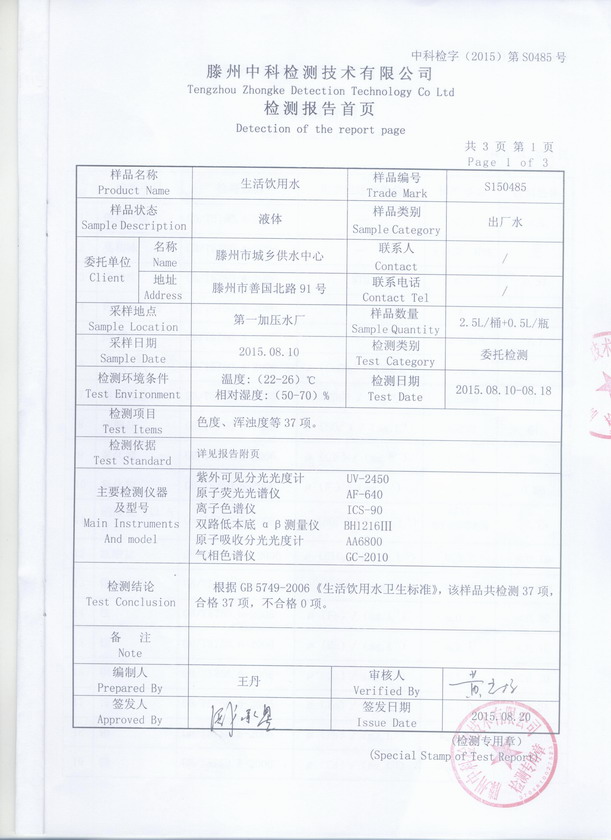 中科检字（2015）第 S0485 号
滕州中科检测技术有限公司
Tengzhou Zhongke Detection Technology Co Ltd
检测报告首页
Detection of the report page
共 3 页 第 1 页
Page 1 of 3
样品名称 生活饮用水 样品编号 S150485
Product Name Trade Mark
样品状态 液体 样品类别 出厂水
Sample Description Sample Category
委托单位 名称 滕州市城乡供水中心 联系人 /
Client Name Contact
地址 滕州市善国北路 91 号 联系电话 /
Address Contact Tel
采样地点 第一加压水厂 样品数量 2.5L/桶+0.5L/瓶
Sample Location Sample Quantity
采样日期 2015.08.10 检测类别 委托检测
Sample Date Test Category
检测环境条件 温度:（22-26）℃ 检测日期 2015.08.10-08.18
Test Environment 相对湿度:（50-70）% Test Date
检测项目 色度、浑浊度等 37 项。
Test Items
检测依据 详见报告附页
Test Standard
主要检测仪器 紫外可见分光光度计 UV-2450
及型号 原子荧光光谱仪 AF-640
Main Instruments 离子色谱仪 ICS-90
And model 双路低本底 αβ测量仪 BH1216Ⅲ
原子吸收分光光度计 AA6800
气相色谱仪 GC-2010
检测结论 根据 GB 5749-2006《生活饮用水卫生标准》，该样品共检测 37 项，
Test Conclusion 合格 37 项，不合格 0 项。
备 注
Note
编制人 王丹 审核人
Prepared By Verified By
签发人 签发日期 2015.08.20
Approved By Issue Date
（检测专用章）
(Special Stamp of Test Report)